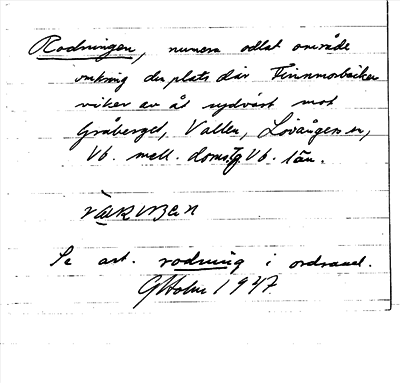 Rodningen, numera odlat område
omkring den plats där Finnmorbäcken
viker av åt sydväst mot
Gråberget, Vallen, Lövångers sn,
Vb. mell. doms. Vb. län.
Se art. rodning i ordsaml.
GHolm 1947.